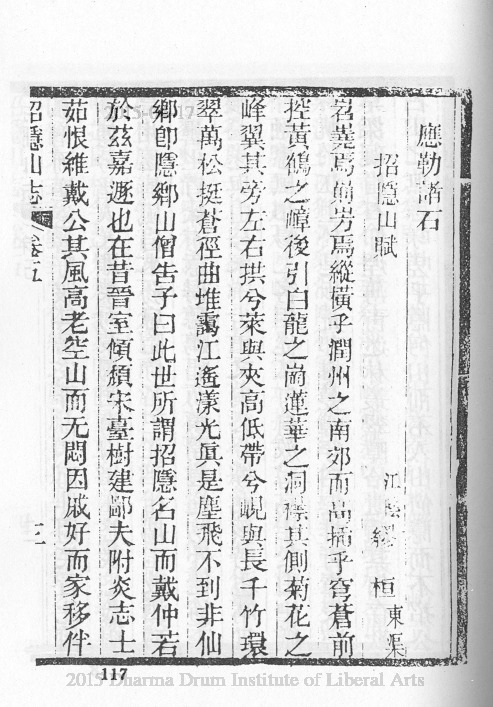 應勒諸石
招隱山賦 江陰繆 桓東渠
岧嶤焉崱屴焉縱橫乎潤州之南郊而高插乎穹蒼前
控黃鶴之嶂後引白龍之崗蓮華之洞襟其側菊花之
峰翼其旁左右拱兮萊與夾高低帶兮峴與長千竹環
翠萬松挺蒼徑曲堆靄江遙漾光眞是塵飛不到非仙
鄉卽隱鄉山僧告予曰此世所謂招隱名山而戴仲若
於茲嘉遯也在昔晉室傾頹宋臺樹建鄙夫附炎志士
茹恨維戴公其風高老空山而无悶因戚好而家移伴
招隱山志 卷五 三
117
2015 Dharma Drum Institute of Liberal Arts